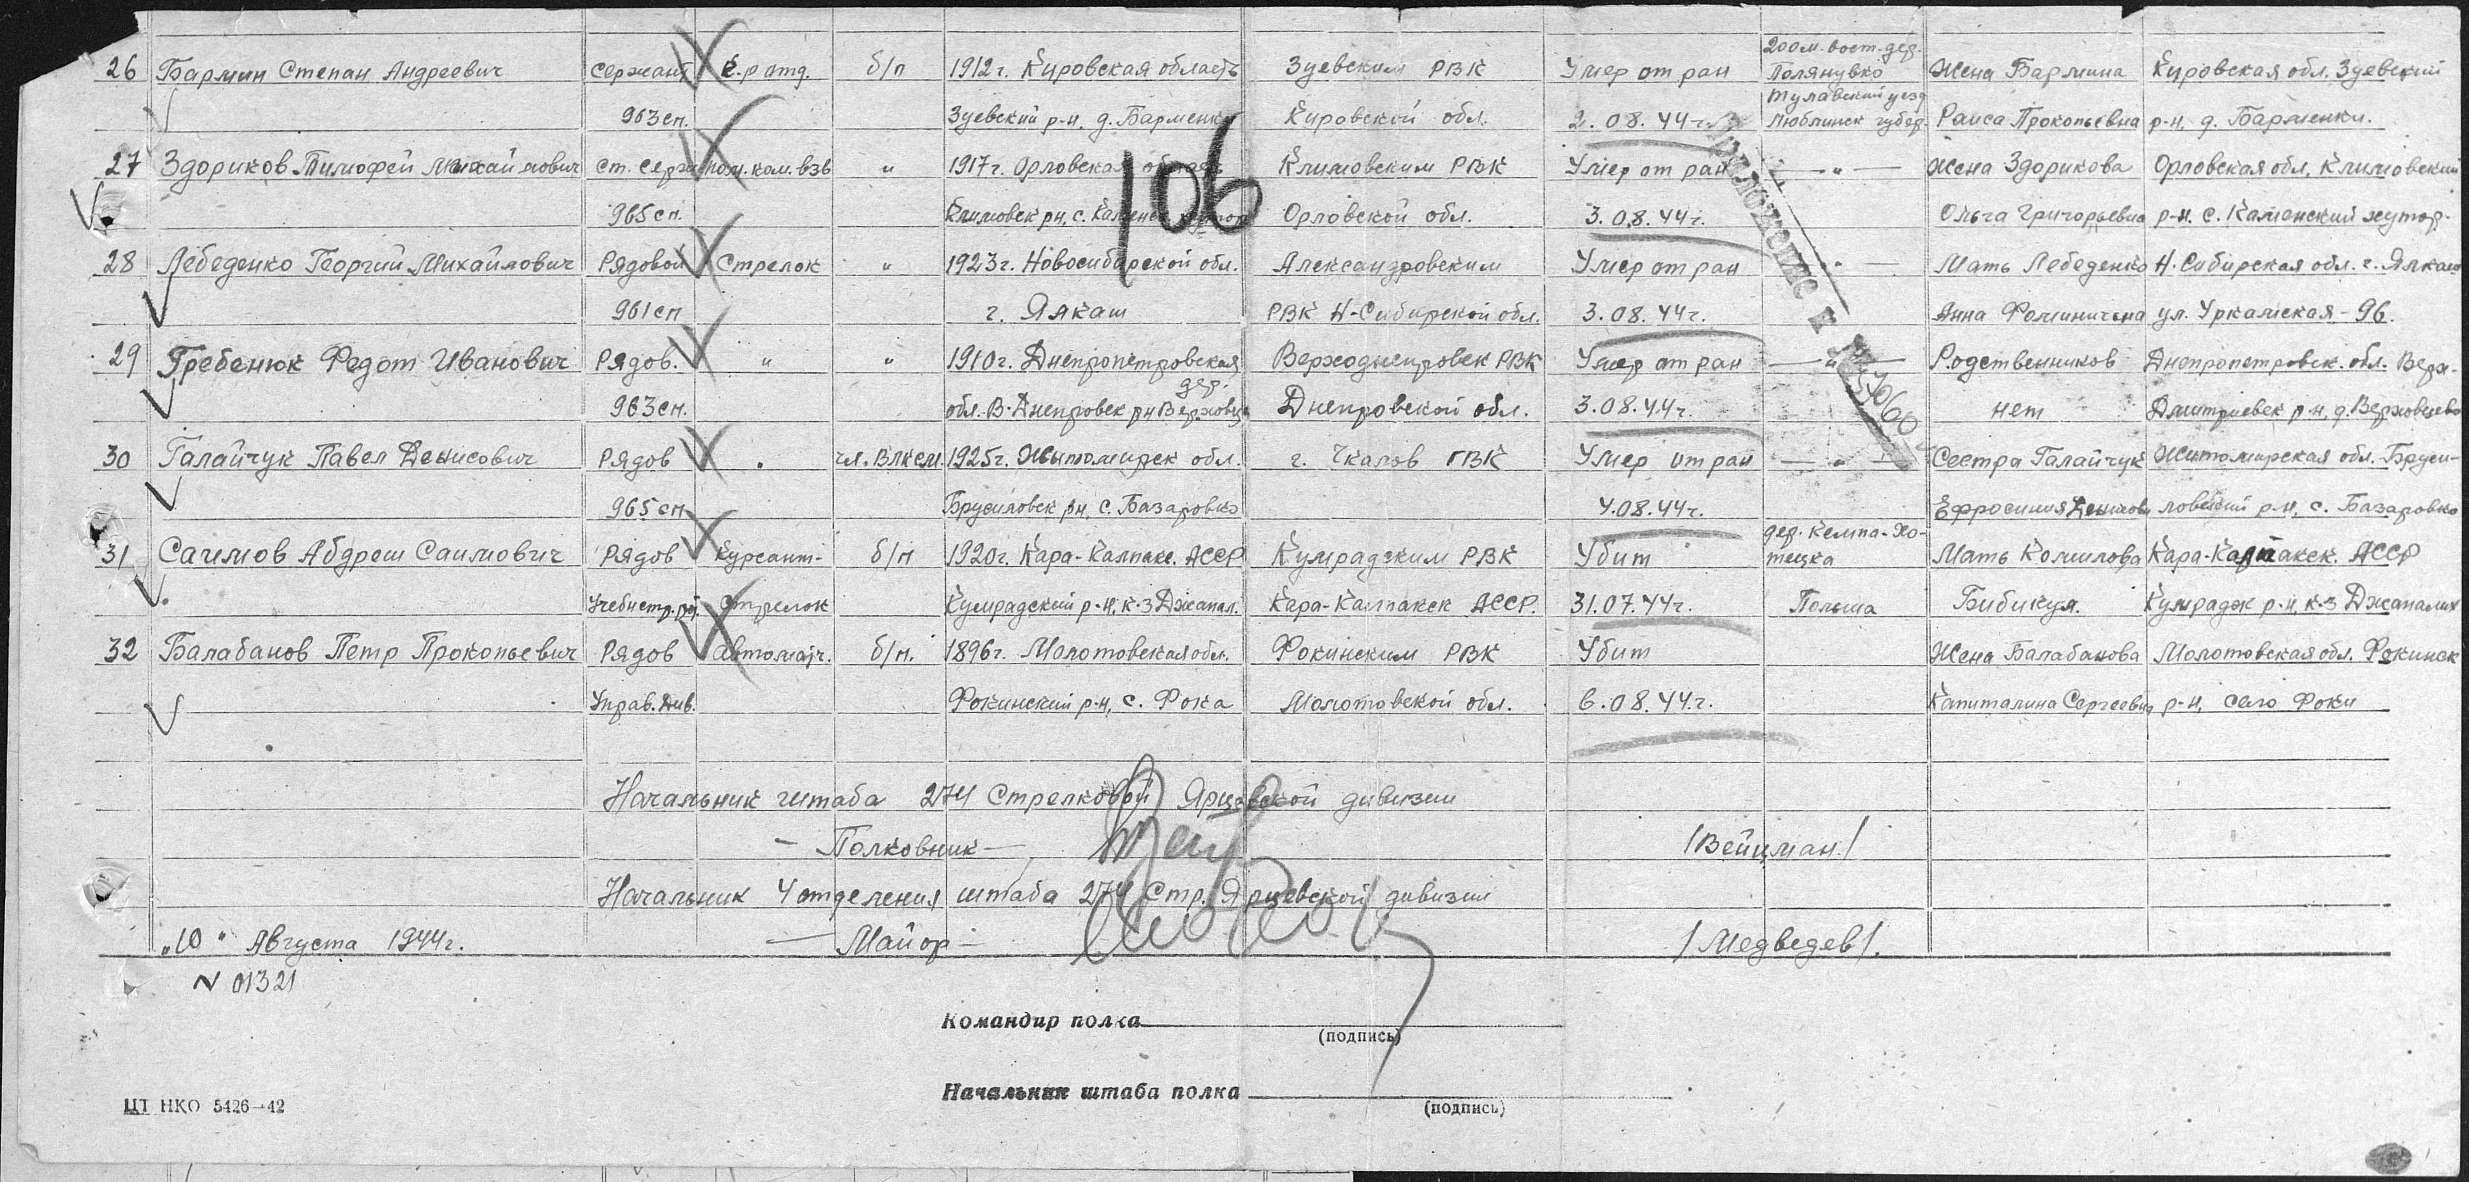 200 м. вост. дер.
26 Бармин Степан Андреевич сержант к-р отд. б/п 1912г. Кировская область Зуевским РВК Умер от ран Полянувко Жена Бармина Кировская обл. Зуевский
963 сп. Зуевский р-н, д. Барменки Кировской обл. 2.08.44г. Люблинск губер. Раиса Прокопьевна р-н, д. Барменки.
27 Здориков Тимофей Михайлович ст. серж пом. ком. взв " 1917г. Орловская область Климовским РВК Умер от ран — " — Жена Здорикова Орловская обл, Климовский
965 сп. Климовск р-н, с. Каменск хутор Орловской обл. 3.08.44г. Ольга Григорьевна р-н. с. Каменский хутор.
28 Лебеденко Георгий Михайлович Рядовой Стрелок " 1923г. Новосибирской обл. Александровским Умер от ран — " — Мать Лебеденко Н. Сибирская обл. г. Ялкаш
961 сп г. Ялкаш РВК Н-Сибирской обл. 3.08.44г. Анна Фоминична ул. Уркамская - 96.
29 Гребенюк Федот Иванович Рядов. " " 1910г. Днепропетровская Верходнепровск РВК Умер от ран — " — Родственников Днепропетровск. обл. Верх-
дер.
963 сп. обл. В-Днепровск р-н Верховцев Днепровской обл. 3.08.44г. нет Дмитриевск р-н, д. Верховцево
30 Галайчук Павел Денисович Рядов " чл. ВЛКСМ 1925г. Житомирск обл. г. Чкалов ГВК Умер от ран — " — Сестра Галайчук Житомирская обл. Бруси-
965 сп Брусиловск р-н, с. Базаровка 4.08.44г. Ефросиния Денисовн ловский р-н, с. Базаровка
дер. Кемпа-Хо-
31 Саимов Абдреш Саимович Рядов Курсант- б/п 1920г. Кара-Калпакс. АССР Кумрадским РВК Убит тецка Мать Комилова Кара-Калпакск. АССР
Учебн стр. р. Стрелок Кумрадский р-н, к-з Джапал. Кара-Калпакск АССР. 31.07.44г. Польша Бибикул. Кумрадск р-н, к-з Джапалык
32 Балабанов Петр Прокопьевич Рядов Автоматч. б/п. 1896г. Молотовская обл. Фокинским РВК Убит Жена Балабанова Молотовская обл. Фокинск
Управ. Див. Фокинский р-н, с. Фока Молотовской обл. 6.08.44г. Капиталина Сергеевна р-н, село Фоки
106
Приложение к №
Начальник штаба 274 Стрелковой Ярцевской дивизии
— Полковник — /Вейцман./
Начальник 4 отделения штаба 274 Стр. Ярцевской дивизии
„10" Августа 1944г. — Майор — /Медведев/.
N 01321
Командир полка
(подпись)
Начальник штаба полка
(подпись)
ЦТ НКО 5426—42